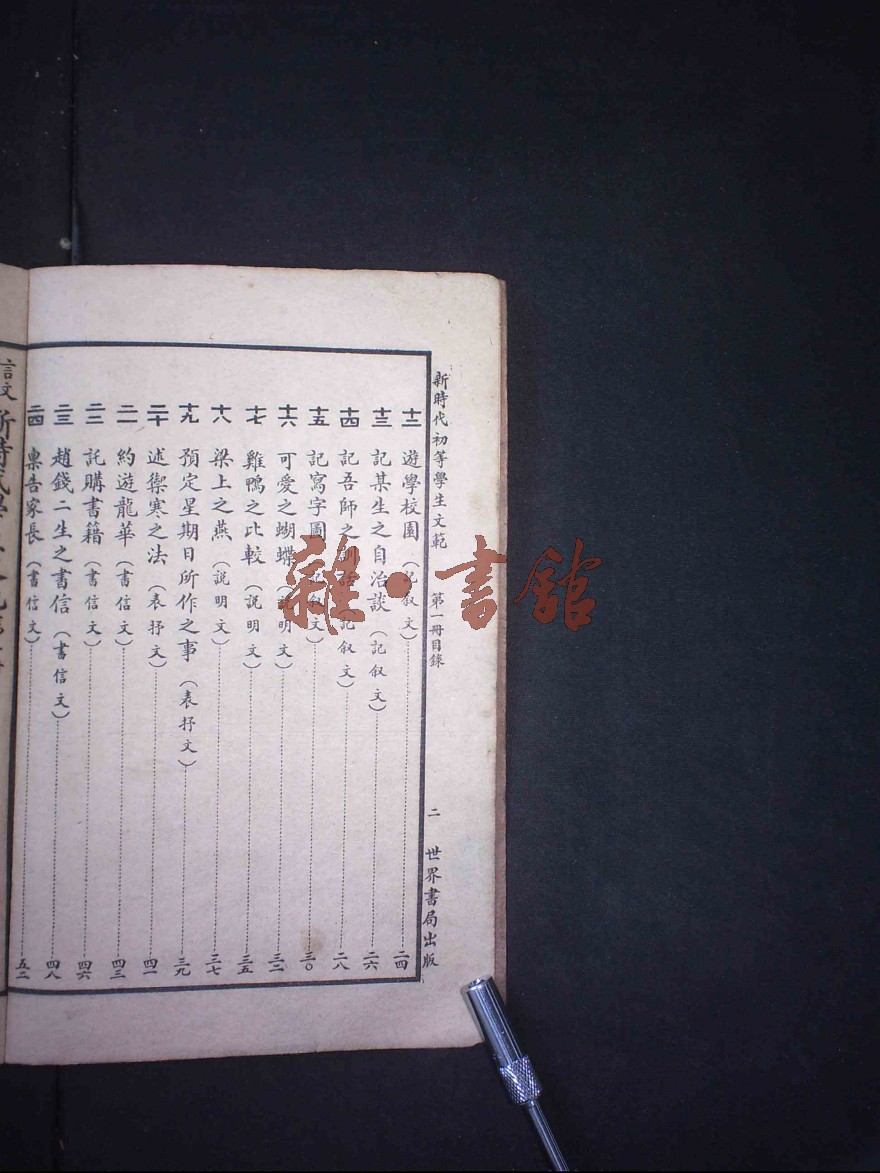 新時代初等學生文範 第一冊目錄 二 世界書局出版
十二 遊學校園（記叙文）二四
十三 記某生之自治談（記叙文）二六
十四 記吾師之訓話（記叙文）二八
十五 記寫字圖（記叙文）三〇
十六 可愛之蝴蝶（說明文）三二
十七 雞鴨之比較（說明文）三五
十八 梁上之燕（説明文）三七
十九 預定星期日所作之事（表抒文）三九
二十 述禦寒之法（表抒文）四一
二一 約遊龍華（書信文）四三
二二 託購書籍（書信文）四六
二三 趙錢二生之書信（書信文）四八
二四 稟告家長（書信文）五二
雜·書館